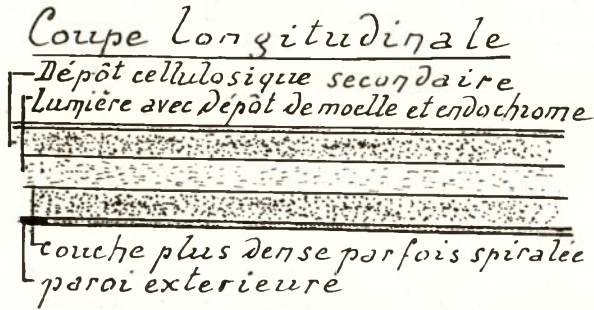 Coupe longitudinale
Dépôt cellulosique secondaire
Lumière avec dépôt de moelle et endochrome
couche plus dense parfois spiralée
paroi exterieure